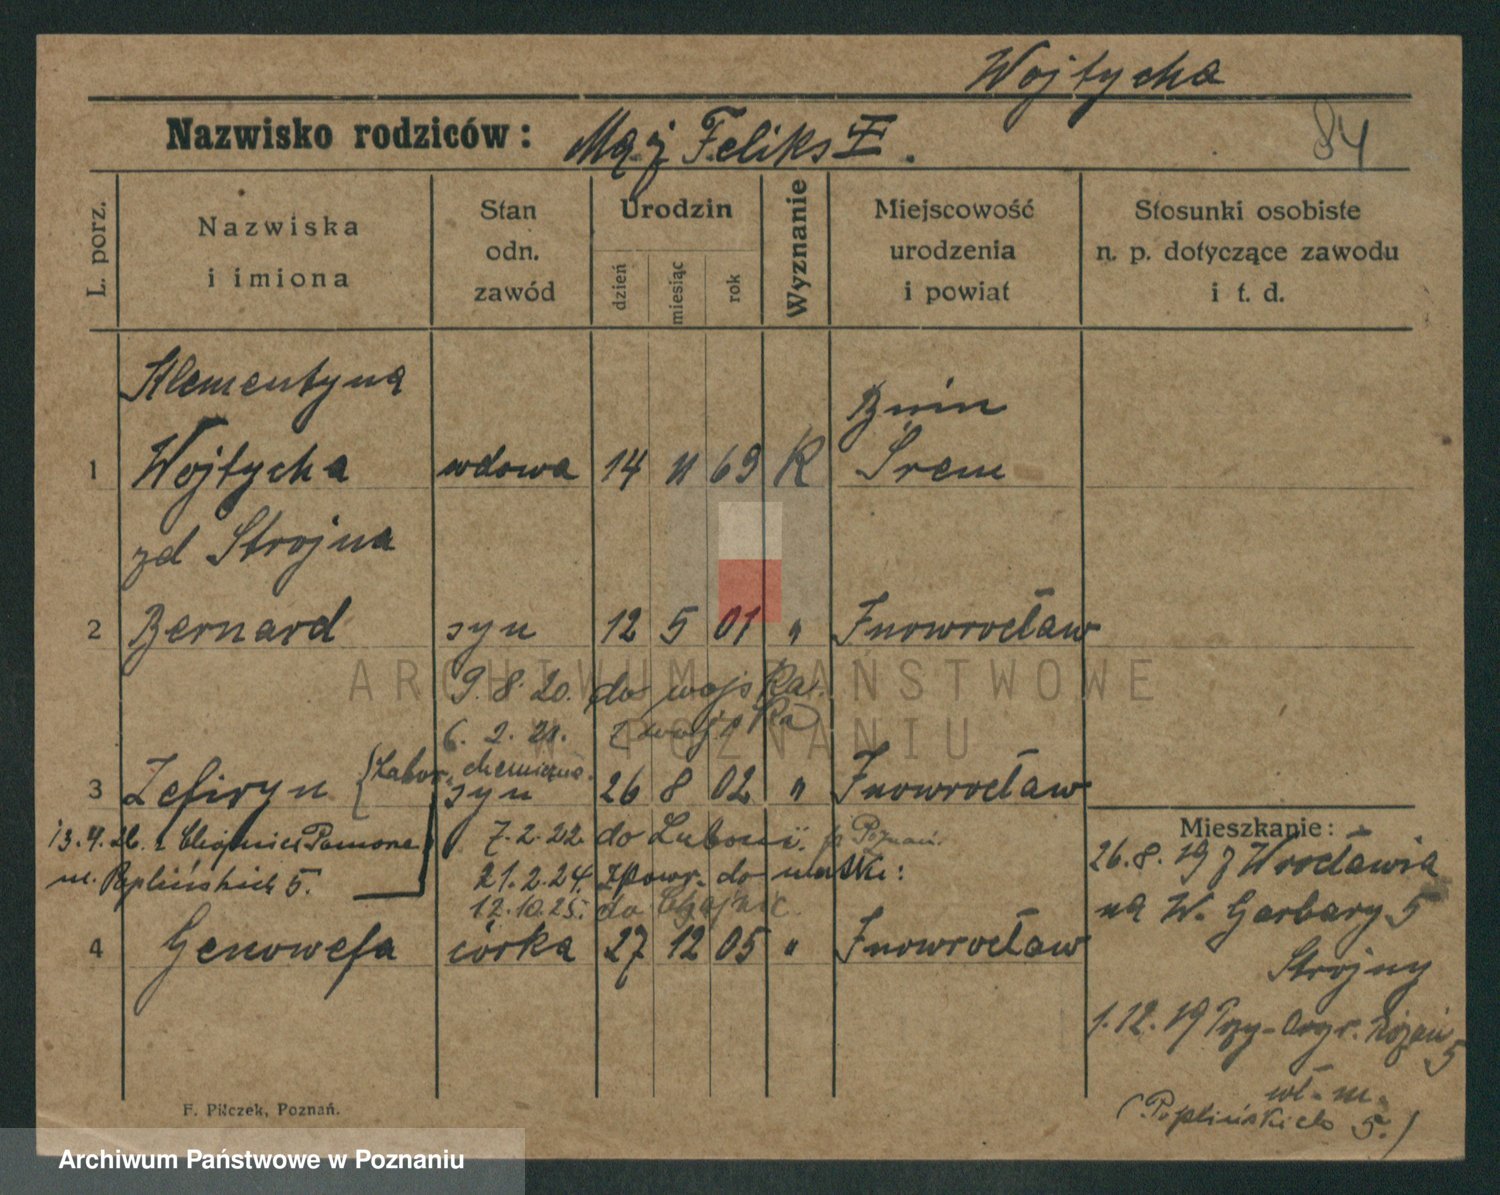 Wojtycha
Nazwisko rodziców: Mąż Feliks II.
84
L. porz.
Nazwiska
i imiona
Stan
odn.
zawód
Urodzin
dzień
miesiąc
rok
Wyznanie
Miejscowość
urodzenia
i powiat
Stosunki osobiste
n. p. dotyczące zawodu
i t. d.
Klementyna
Bnin
1 Wojtycha wdowa 14 11 69 K Śrem
zd Strojna
2 Bernard syn 12 5 01 " Inowrocław
9.8.20. do wojska.
6.2.21. z wojska
{Labor. chemiczne.
3 Zefiryn syn 26 8 02 " Inowrocław
7.2.22. do Luboni. p Poznań.
13.4.26. z Chojnic Pomorze
21.2.24. zpowr. do matki:
ul. Poplińskich 5.
12.10.25. do Chojnic.
4 Genowefa córka 27 12 05 " Inowrocław
Mieszkanie:
26.8.19 z Wrocławia
na W. Garbary 5
Strojny
1.12.19 5
wł. m.
(Poplińskich 5.)
F. Pilczek, Poznań.
ARCHIWUM PAŃSTWOWE
W POZNANIU
Archiwum Państwowe w Poznaniu